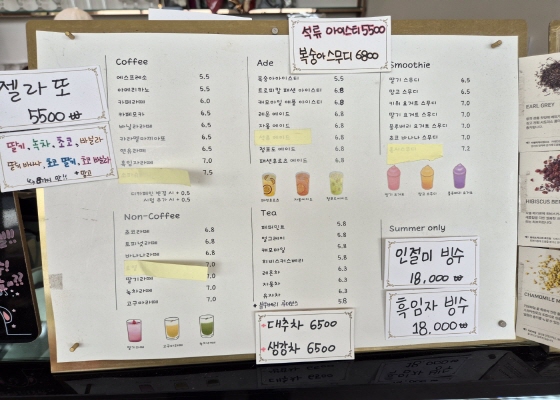 석류 아이스티 5500
복숭아 스무디 6800
젤라또
5500 ₩
딸기, 녹차, 초코, 바닐라
Coffee
에스프레소 5.5
아메리카노 5.5
카페라떼 6.0
카페모카 6.5
바닐라라떼 6.5
카라멜마끼아또 6.5
연유라떼 6.5
흑임자라떼 7.0
7.5
디카페인 변경 시 + 0.5
시럽 추가 시 + 0.5
Non-Coffee
초코라떼 6.8
토피넛라떼 6.8
바나나라떼 6.8
7.0
딸기라떼 7.0
녹차라떼 7.0
고구마라떼 7.0
딸기라떼
고구마라떼
녹차라떼
Ade
복숭아아이스티 5.5
트로피칼 패션 아이스티 6.8
캐모마일 애플 아이스티 6.8
레몬 에이드 6.8
자몽 에이드 6.8
청포도 에이드 6.8
패션후르츠 에이드 6.8
Tea
페퍼민트 5.8
얼그레이 5.8
캐모마일 5.8
히비스커스베리 5.8
레몬차 6.3
자몽차 6.3
유자차 6.3
5.8
대추차 6500
생강차 6500
Smoothie
딸기 스무디 6.5
망고 스무디 6.5
키위 요거트 스무디 7.0
딸기 요거트 스무디 7.0
블루베리 요거트 스무디 7.0
초코 바나나 스무디 7.0
7.2
Summer only
인절미 빙수
18,000 ₩
흑임자 빙수
18.000 ₩
EARL GREY
HIBISCUS BER
CHAMOMILE